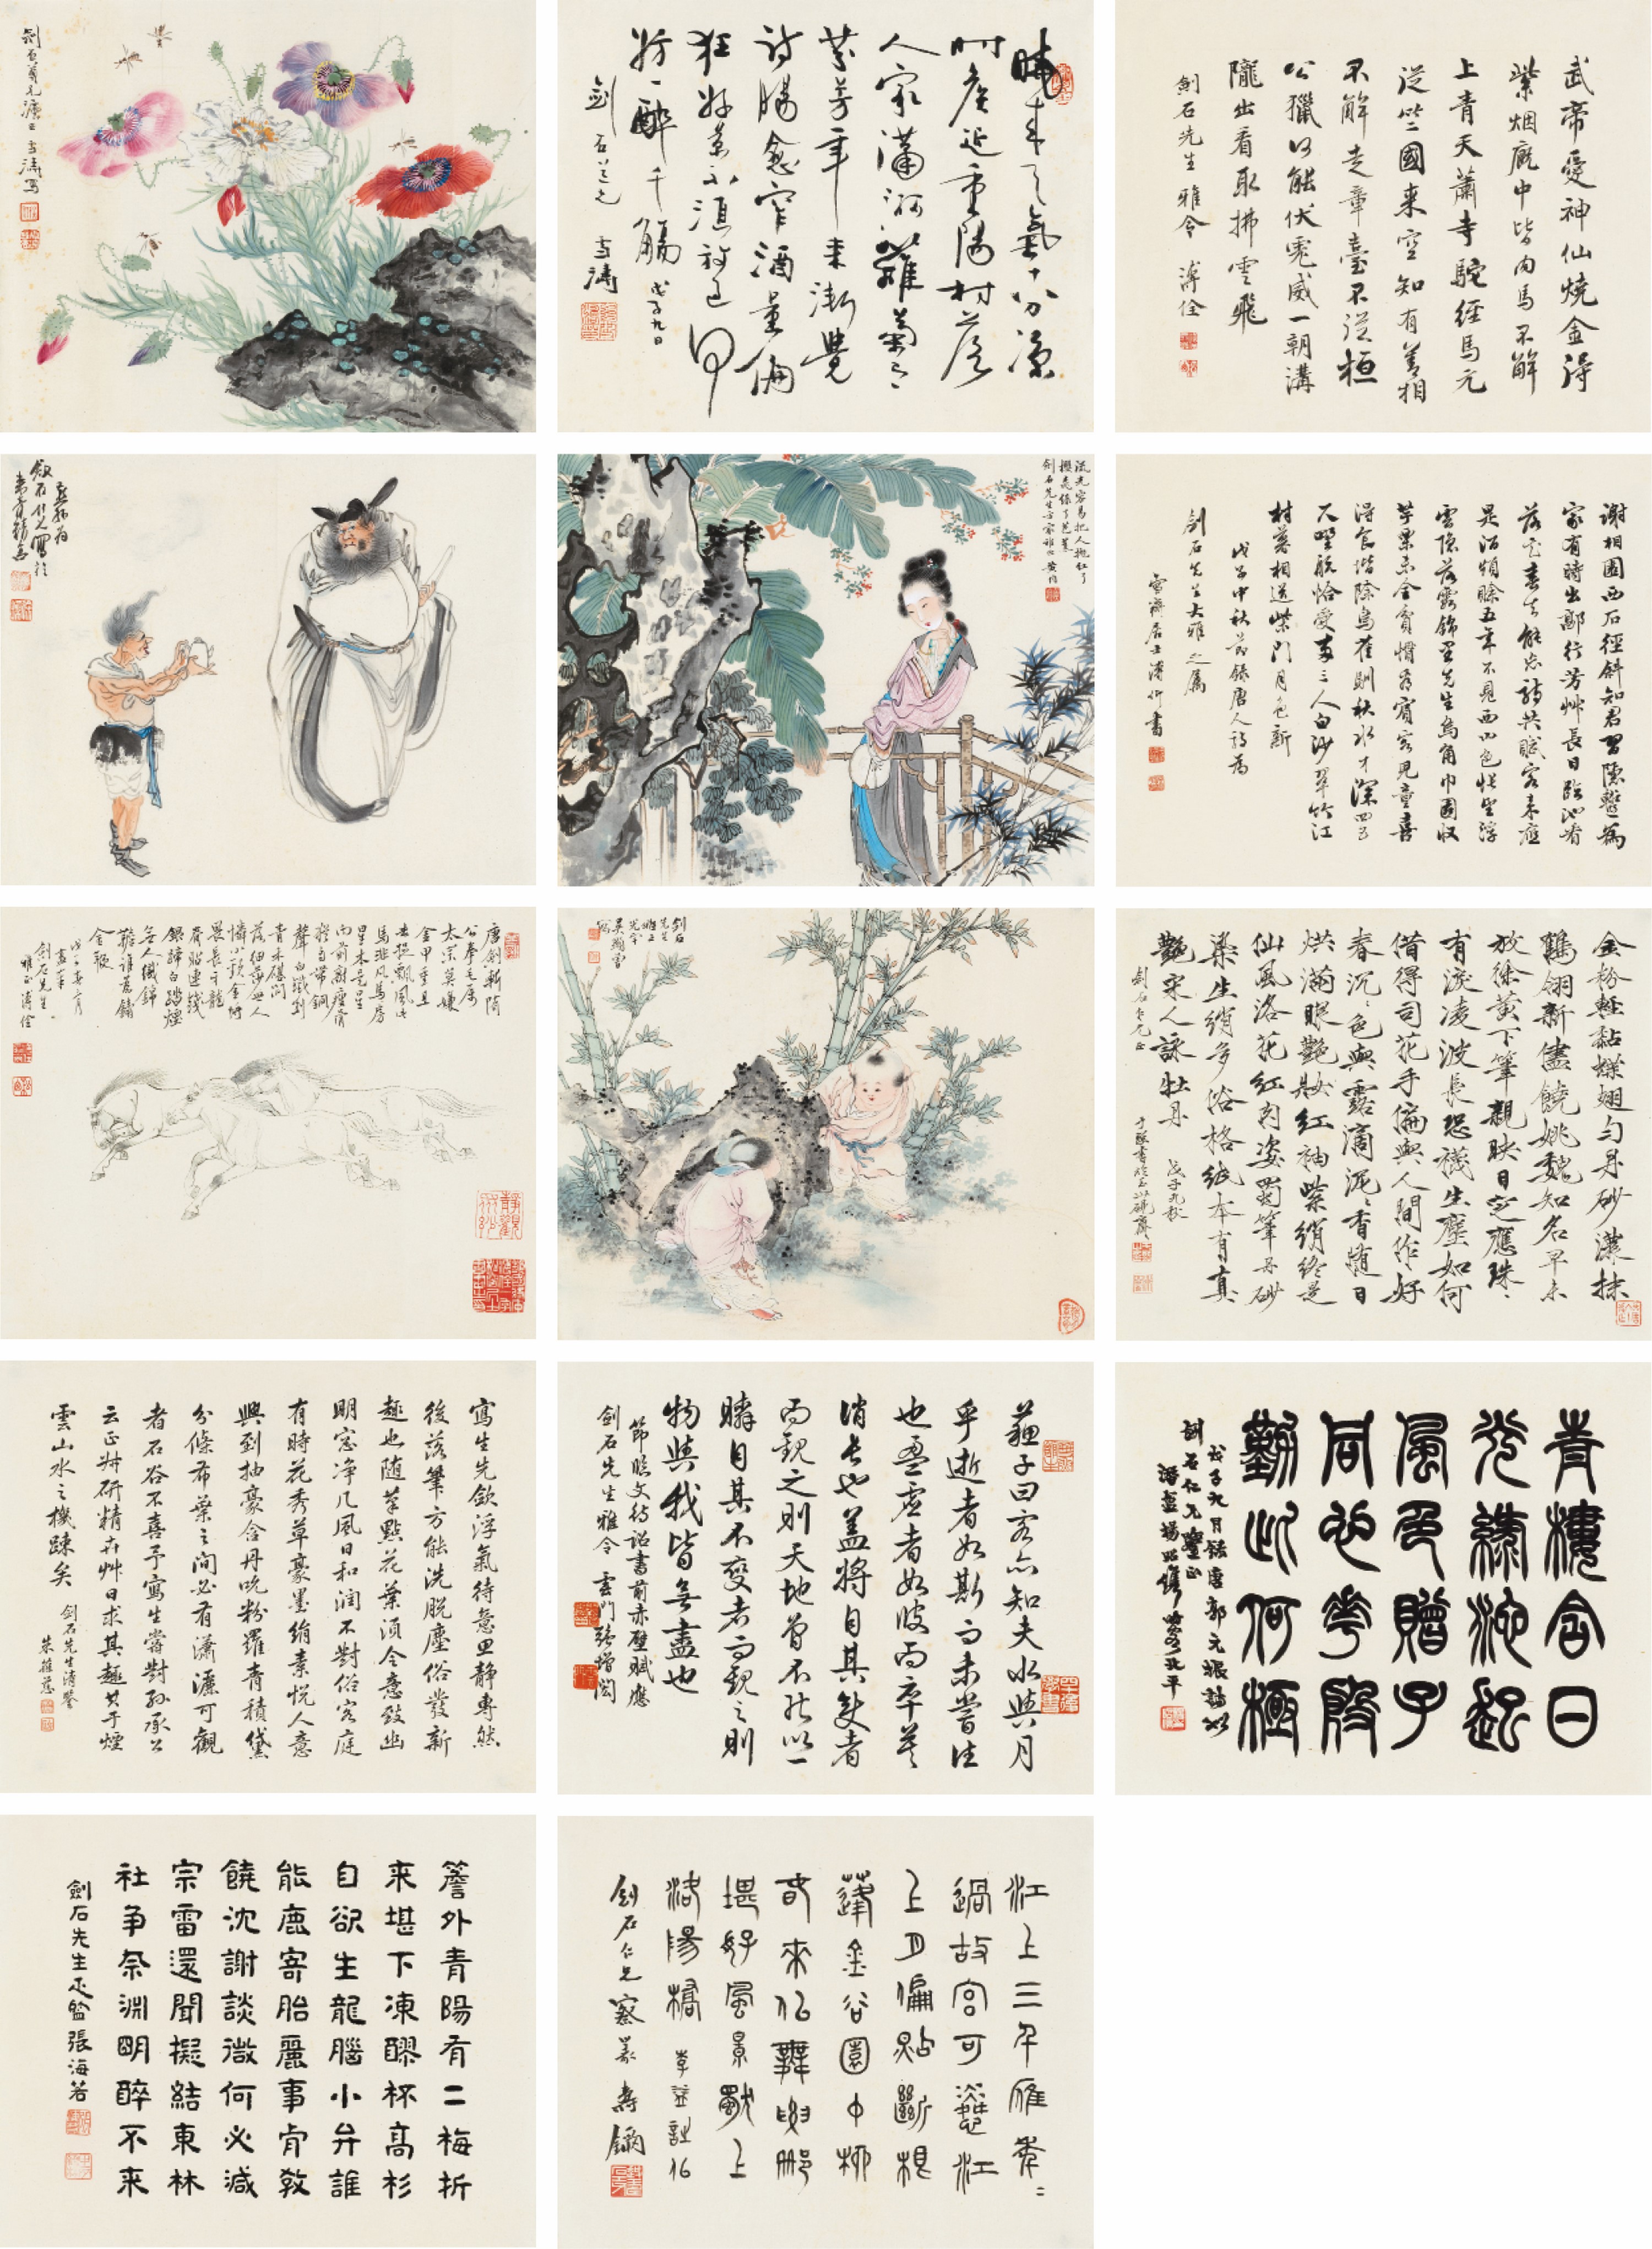 劍石尊兄灋正 雪濤寫
曉來天氣十分涼
時序延重陽村落
人家瀟洒籬菊正
芬芳年來漸覺
詩腸愈窄酒量偏
狂好景不須放過何
妨一醉千觴 戊子九日
劍石尊兄 雪濤
武帝愛神仙燒金得
紫烟廄中皆肉馬不解
上青天蕭寺馱經馬元
從竺國來空知有善相
不解走章臺不從桓
公獵何能伏虎威一朝溝
隴出看取拂雲飛
劍石先生雅令 溥佺
燕孫為
劍石仁兄寫於
流光容易把人抛紅了
櫻桃綠了芭蕉
劍石先生方家雅正 黄均
謝相園西石徑斜知君習隱暫為
家有時出郭行芳艸長日臨池看
落花春去能忘詩共賦客來應
是酒頻賒五年不見西山色悵望浮
雲隱落霞錦里先生烏角巾園收
芋栗未全貧慣看賓客兒童喜
得食階除鳥雀馴秋水才深四五
尺野航恰受兩三人白沙翠竹江
村暮相送柴門月色新
戊子中秋節錄唐人詩為
劍石先生大雅之屬
雪齋居士溥伒書
唐劍斬隋
公拳毛屬
太宗莫嫌
金甲重且
去捉飄風此
馬非凡馬房
星本是星
向前敲瘦骨
猶自帶銅
聲白鐵剉
青禾碪間
落細莎世人
憐小頸金埒
畏長牙龍
脊貼連錢
銀蹄白踏煙
無人織錦
韂誰為鑄
金鞭
劍石先生
雅正 溥佺
劍石
先生
金粉輕黏蝶翅勻丹砂濃抹
鶴翎新儘饒姚魏知名早未
放徐黃下筆親映日定應珠
有淚凌波長恐襪生塵如何
借得司花手徧與人間作好
春沉〻色與露滴泥〻香隨日
烘滿眼艷妝紅袖紫綃終是
仙風洛花紅肉姿蜀筆丹砂
染生綃多俗格紙本有真
艷宋人詠牡丹
劍石仁兄正
戊子九秋
寫生先歛浮氣待意思靜專然
後落筆方能洗脫塵俗發新
趣也隨筆點花葉須令意致幽
明窓净几風日和潤不對俗客庭
有時花秀草豪墨絹素悅人意
興到抽豪含丹吮粉羅青積黛
分條布葉之間必有瀟灑可觀
者石谷不喜予寫生嘗對孫承公
云正叔研精卉艸日求其趣其于煙
雲山水之機疎矣
劍石先生清鑒
朱葆慈
蘇子曰客亦知夫水與月
乎逝者如斯而未嘗往
也盈虛者如彼而卒莫
消長也蓋將自其變者
而觀之則天地曾不能以一
瞬自其不變者而觀之則
物與我皆無盡也
節臨文待詔書前赤壁賦應
劍石先生雅令 雲門張增閎
青樓含日
光綠池起
風色贈子
同心花殷
勤此何極
戊子九月錄唐郭元振詩似
劍石仁兄璽正
潛盦楊昭儁時客北平
簷外青陽有二梅折
來堪下凍醪杯高杉
自欲生龍腦小弁誰
能鹿寄胎麗事肯教
饒沈謝談微何必減
宗雷還聞擬結東林
社争奈淵明醉不来
劍石先生正監 張海若
江上三千雁年〻
過故宮可憐江
上月偏照斷根
蓬金谷園中柳
春來似舞腰那
堪好風景獨上
洛陽橋 李益詩似
劍石仁兄察篆 壽鉨